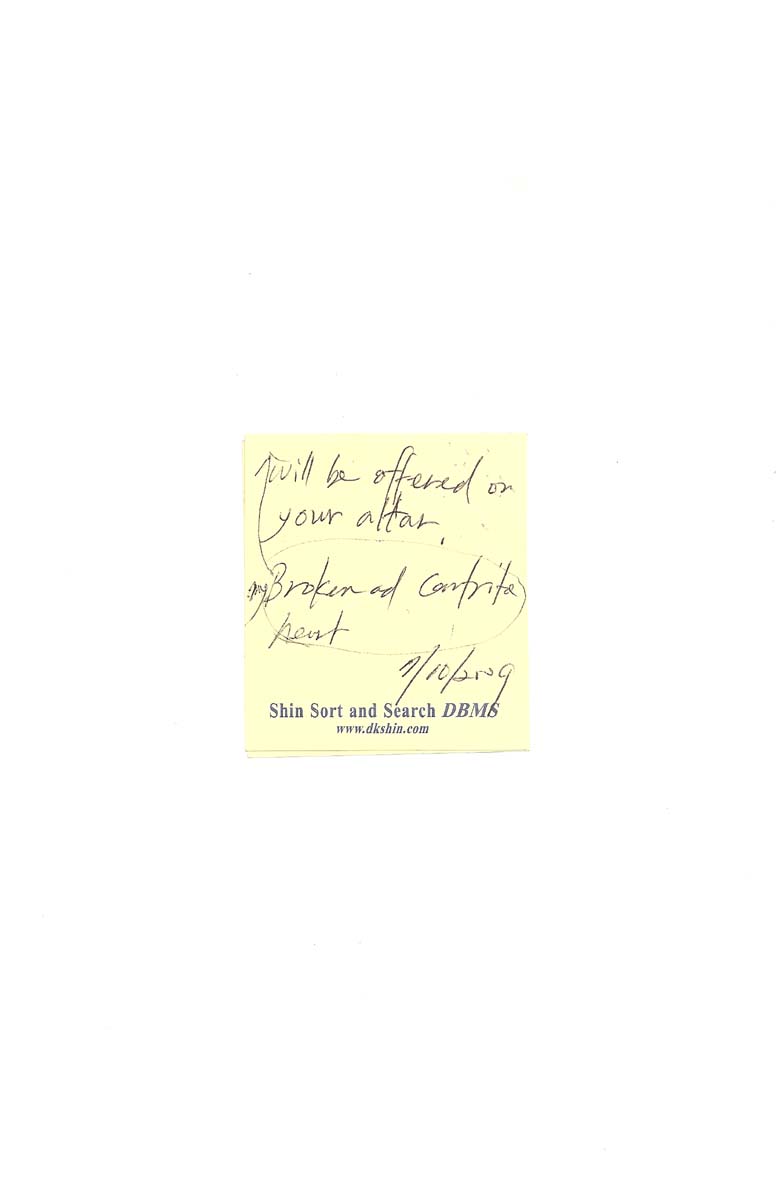 will be offered on
your altar.
my Broken ad Contrite
heart
7/10/2009
Shin Sort and Search DBMS
www.dkshin.com